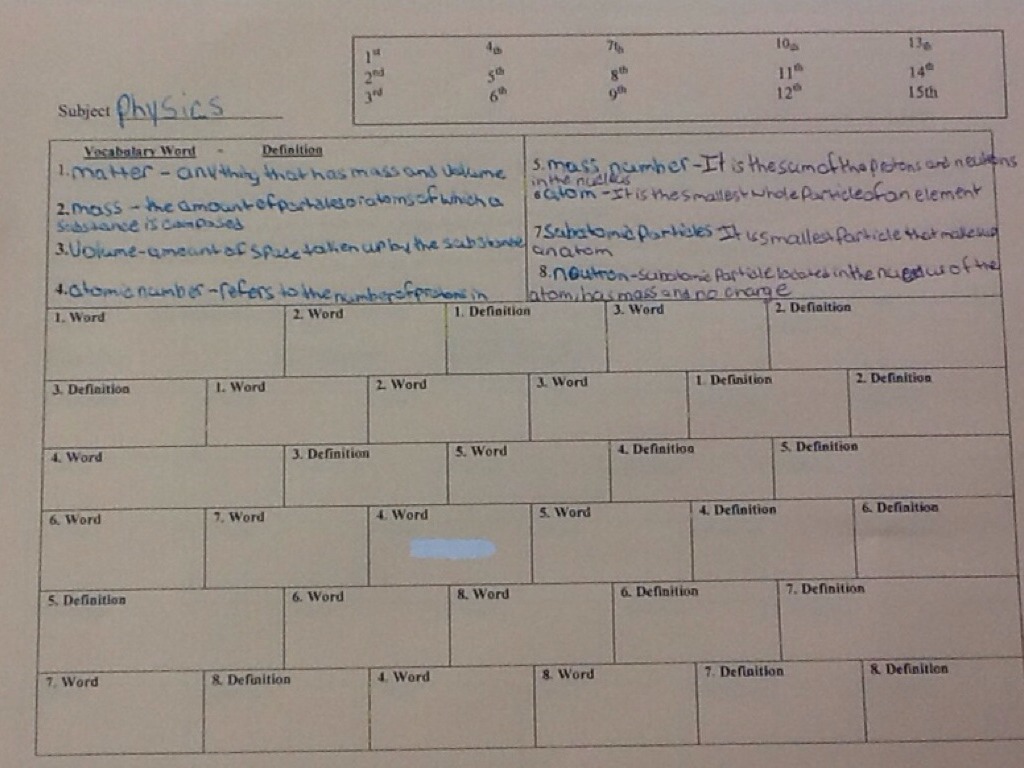 1st 4th 7th 10th 13th
2nd 5th 8th 11th 14th
3rd 6th 9th 12th 15th
Subject Physics
Vocabulary Word - Definition
1. matter - anything that has mass and volume
2. mass - the amount of particles or atoms of which a
substance is composed
3. Volume - amount of space taken up by the substance
4. atomic number - refers to the number of protons in
5. mass number - It is the sum of the protons and neutrons
in the nucleus
6 atom - It is the smallest whole particle of an element
7 Subatomic particles It is smallest particle that makes up
an atom
8. neutron - subatomic particle located in the nucleus of the
atom; has mass and no charge
1. Word 2. Word 1. Definition 3. Word 2. Definition
3. Definition 1. Word 2. Word 3. Word 1. Definition 2. Definition
4. Word 3. Definition 5. Word 4. Definition 5. Definition
6. Word 7. Word 4. Word 5. Word 4. Definition 6. Definition
5. Definition 6. Word 8. Word 6. Definition 7. Definition
7. Word 8. Definition 4. Word 8. Word 7. Definition 8. Definition